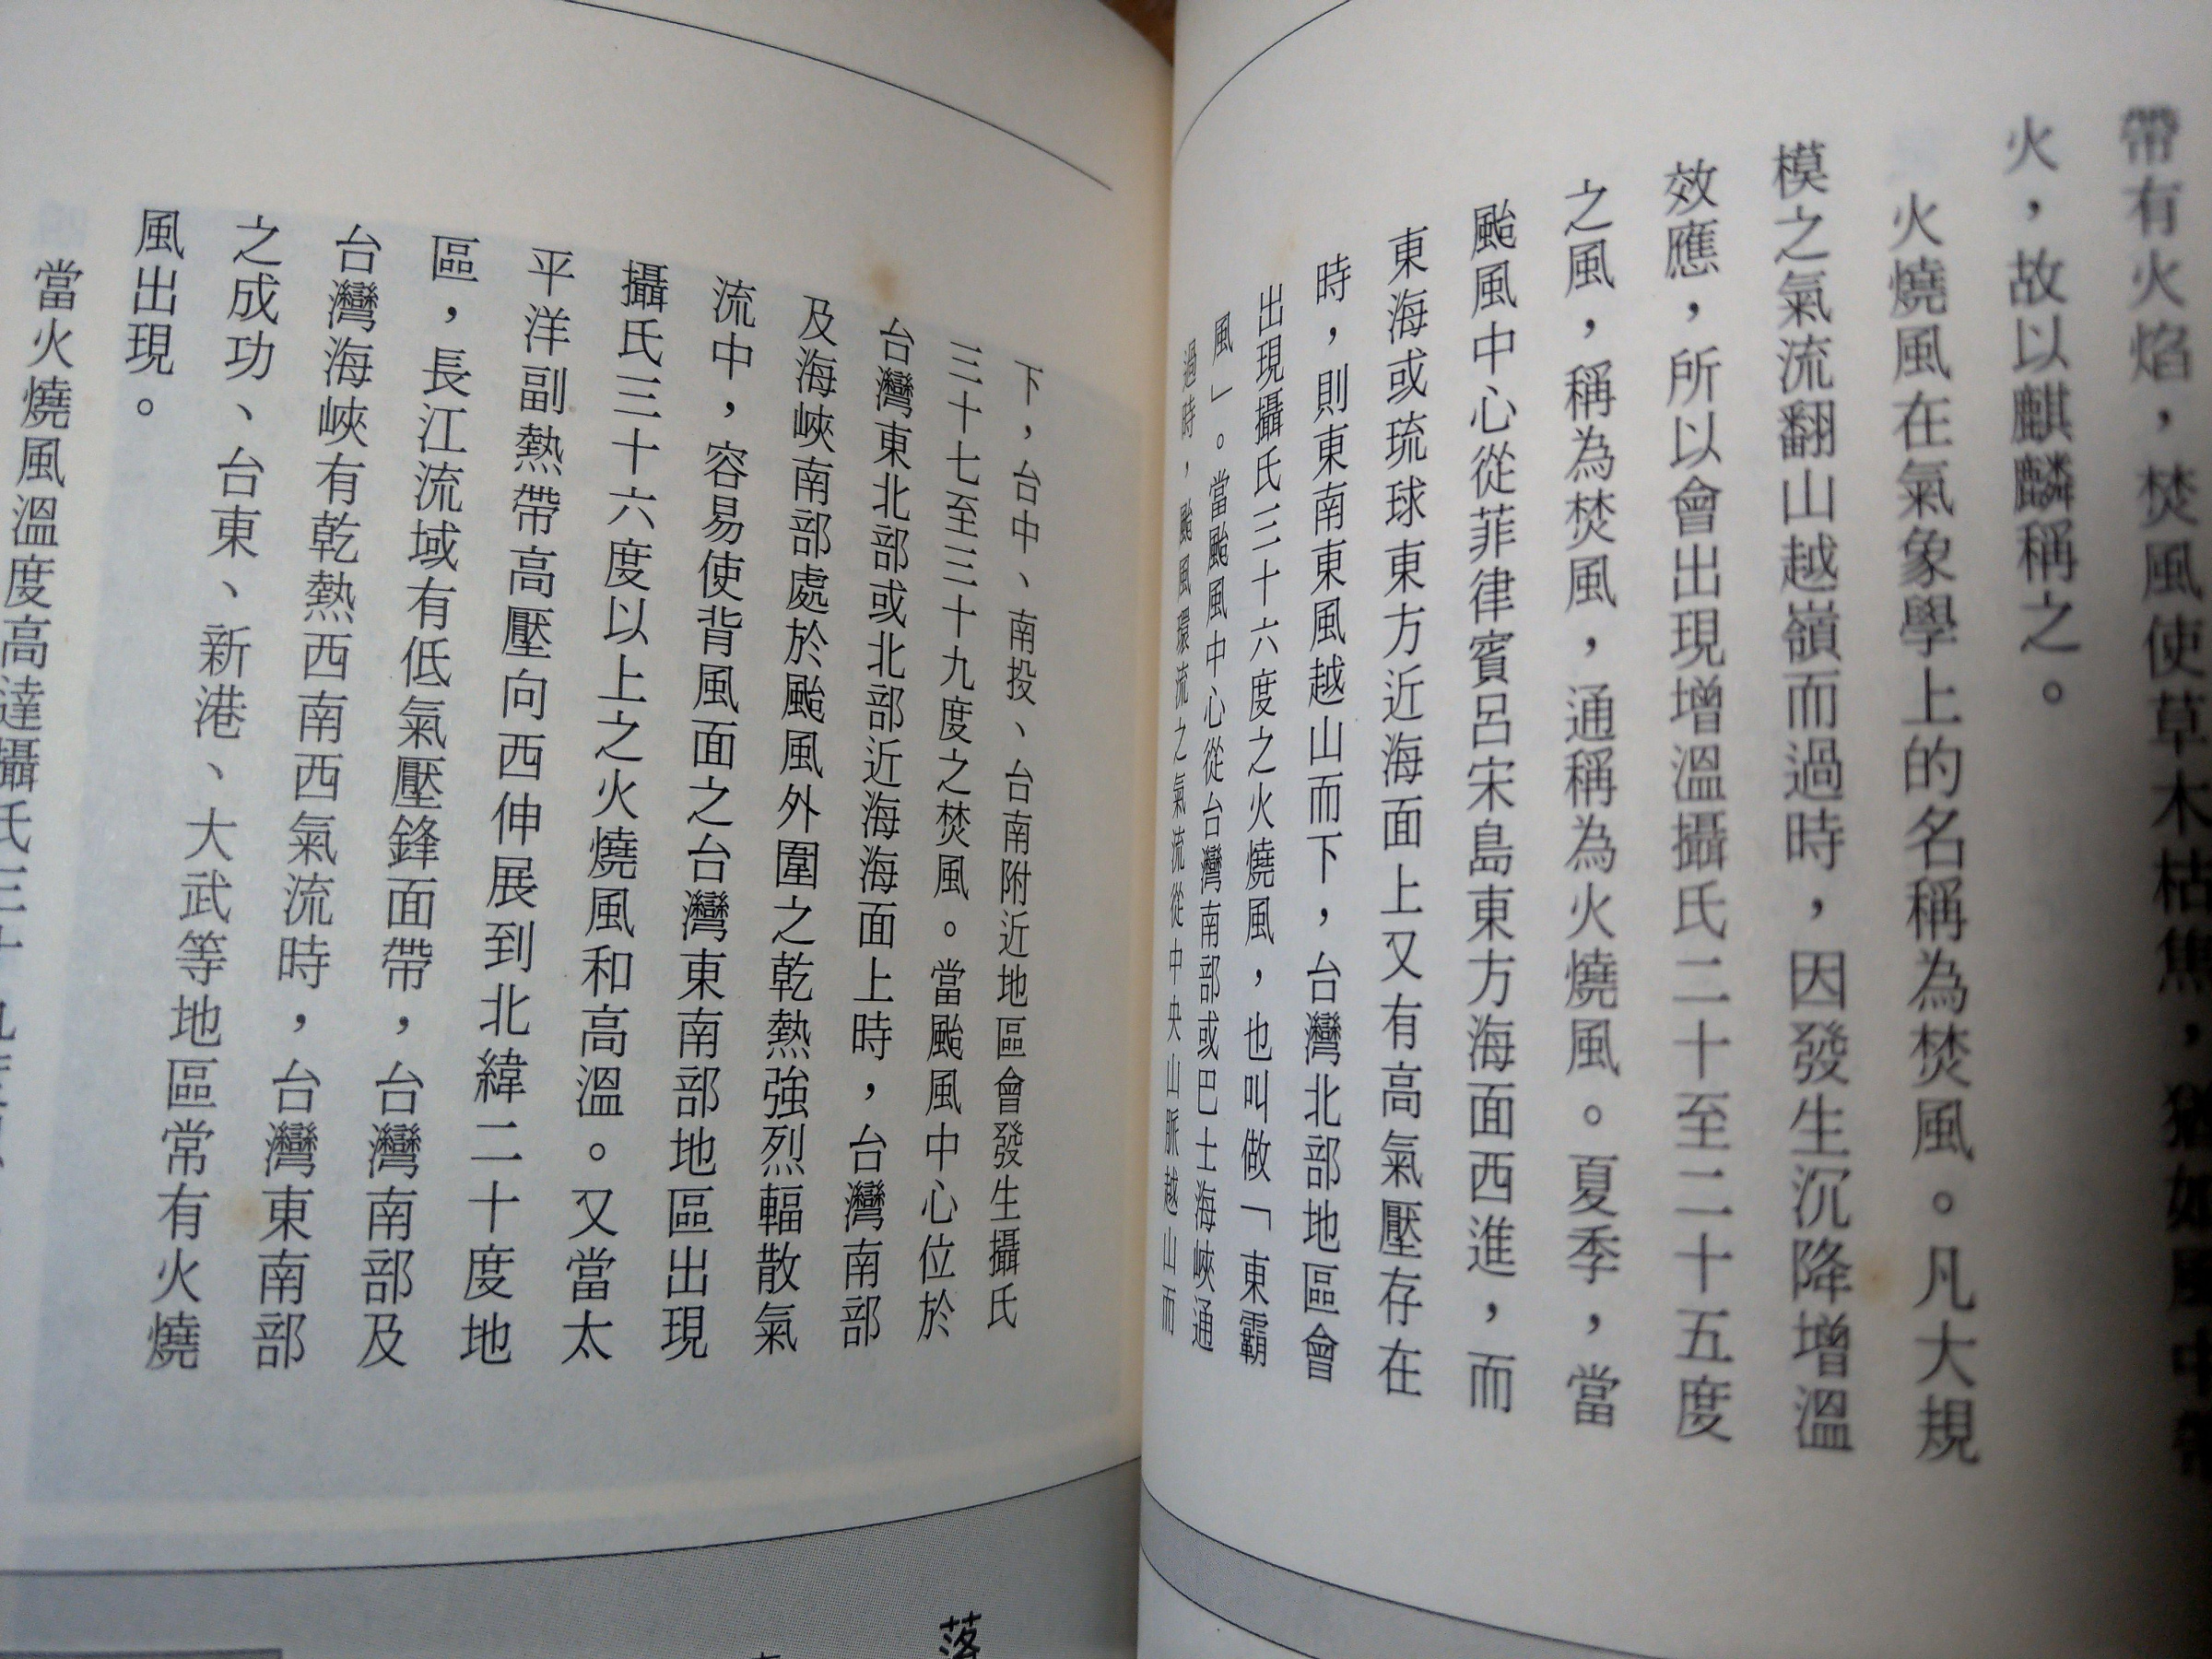 帶有火焰，焚風使草木枯焦，猶如
火，故以麒麟稱之。
火燒風在氣象學上的名稱為焚風。凡大規
模之氣流翻山越嶺而過時，因發生沉降增溫
效應，所以會出現增溫攝氏二十至二十五度
之風，稱為焚風，通稱為火燒風。夏季，當
颱風中心從菲律賓呂宋島東方海面西進，而
東海或琉球東方近海面上又有高氣壓存在
時，則東南東風越山而下，台灣北部地區會
出現攝氏三十六度之火燒風，也叫做「東霸
風」。當颱風中心從台灣南部或巴士海峽通
過時，颱風環流之氣流從中央山脈越山而
下，台中、南投、台南附近地區會發生攝氏
三十七至三十九度之焚風。當颱風中心位於
台灣東北部或北部近海海面上時，台灣南部
及海峽南部處於颱風外圍之乾熱強烈輻散氣
流中，容易使背風面之台灣東南部地區出現
攝氏三十六度以上之火燒風和高溫。又當太
平洋副熱帶高壓向西伸展到北緯二十度地
區，長江流域有低氣壓鋒面帶，台灣南部及
台灣海峽有乾熱西南西氣流時，台灣東南部
之成功、台東、新港、大武等地區常有火燒
風出現。
當火燒風溫度高達攝氏三十九度
落